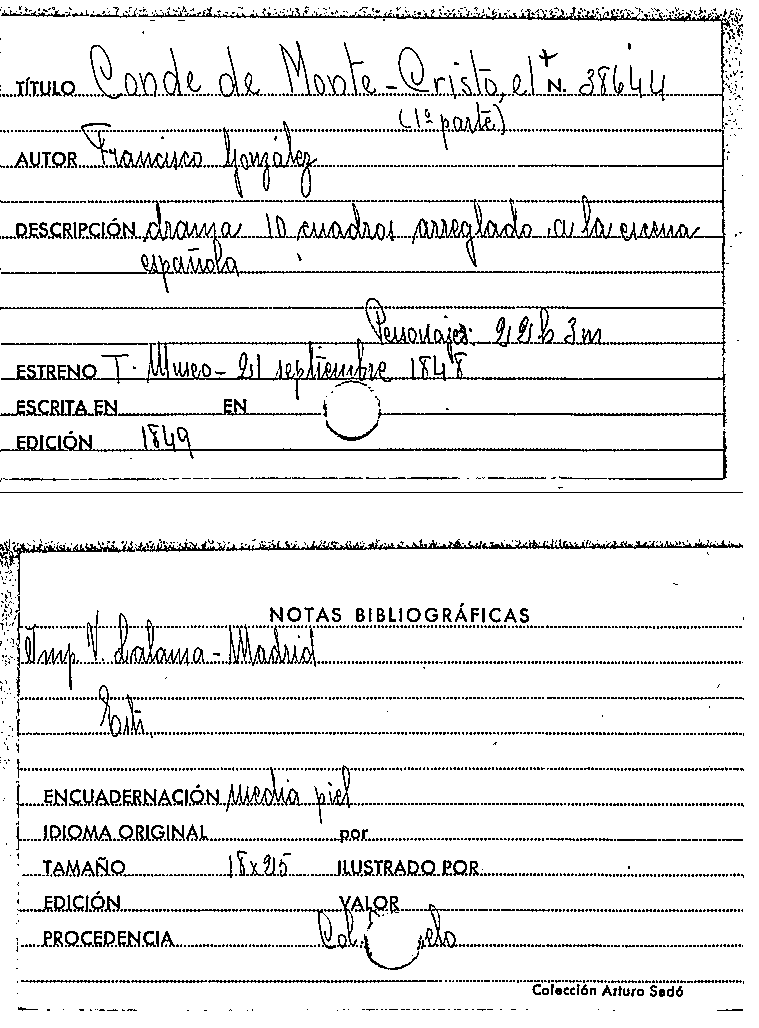 TÍTULO Conde de Monte-Cristo, el + N. 38644
(1ª parte)
AUTOR Francisco González
DESCRIPCIÓN drama 10 cuadros arreglado a la escena
española
Personajes: 22h 3m
ESTRENO T. Museo - 21 septiembre 1848
ESCRITA EN EN
EDICIÓN 1849
NOTAS BIBLIOGRÁFICAS
Imp V. Lalama - Madrid
ENCUADERNACIÓN Media piel
IDIOMA ORIGINAL por
TAMAÑO 18x25 ILUSTRADO POR
EDICIÓN VALOR
PROCEDENCIA Col.
Colección Arturo Sedó